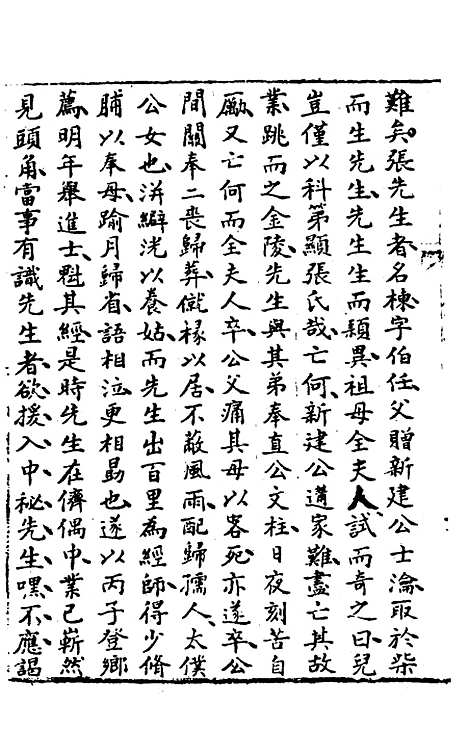 難矣張先生者名棟字伯任父贈新建公士瀹取於柴
而生先生先生生而穎異祖母全夫人試而奇之曰兒
豈僅以科第顯張氏哉亡何新建公遘家難盡亡其故
業跳而之金陵先生與其弟奉直公文柱日夜刻苦自
勵又亡何而全夫人卒公父痛其母以客死亦遂卒公
間關奉二喪歸葬僦椽以居不蔽風雨配歸孺人太僕
公女也洴澼洸以養姑而先生出百里為經師得少脩
脯以奉母踰月歸省語相泣更相勗也遂以丙子登鄉
薦明年舉進士魁其經是時先生在儕偶中業已嶄然
見頭角當事有識先生者欲援入中秘先生嘿不應謁